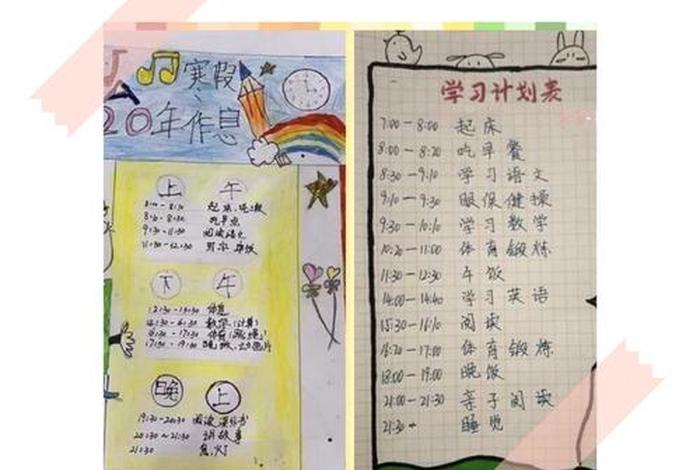 寒假
20年作息
上午
8:00-8:30 起床、洗漱
吃早点
9:30-11:30 阅读语文
11:30-12:30
下午
12:30-13:30 休息
数学(计算)
17:30-19:30 晚饭、
晚上
19:30-20:30 阅读课外书
20:30~21:30 讲故事
21:30 息灯
学习计划表
7:00-8:00 起床
8:00-8:20 吃早餐
8:30-9:10 学习语文
9:10-9:30 眼保健操
9:30-10:10 学习数学
10:20-11:00 体育锻炼
11:30-12:30 午饭
14:00-14:40 学习英语
15:30-16:10 阅读
16:20-17:00 体育锻炼
18:00-19:00 晚饭
21:00-21:30 亲子阅读
21:30- 睡觉